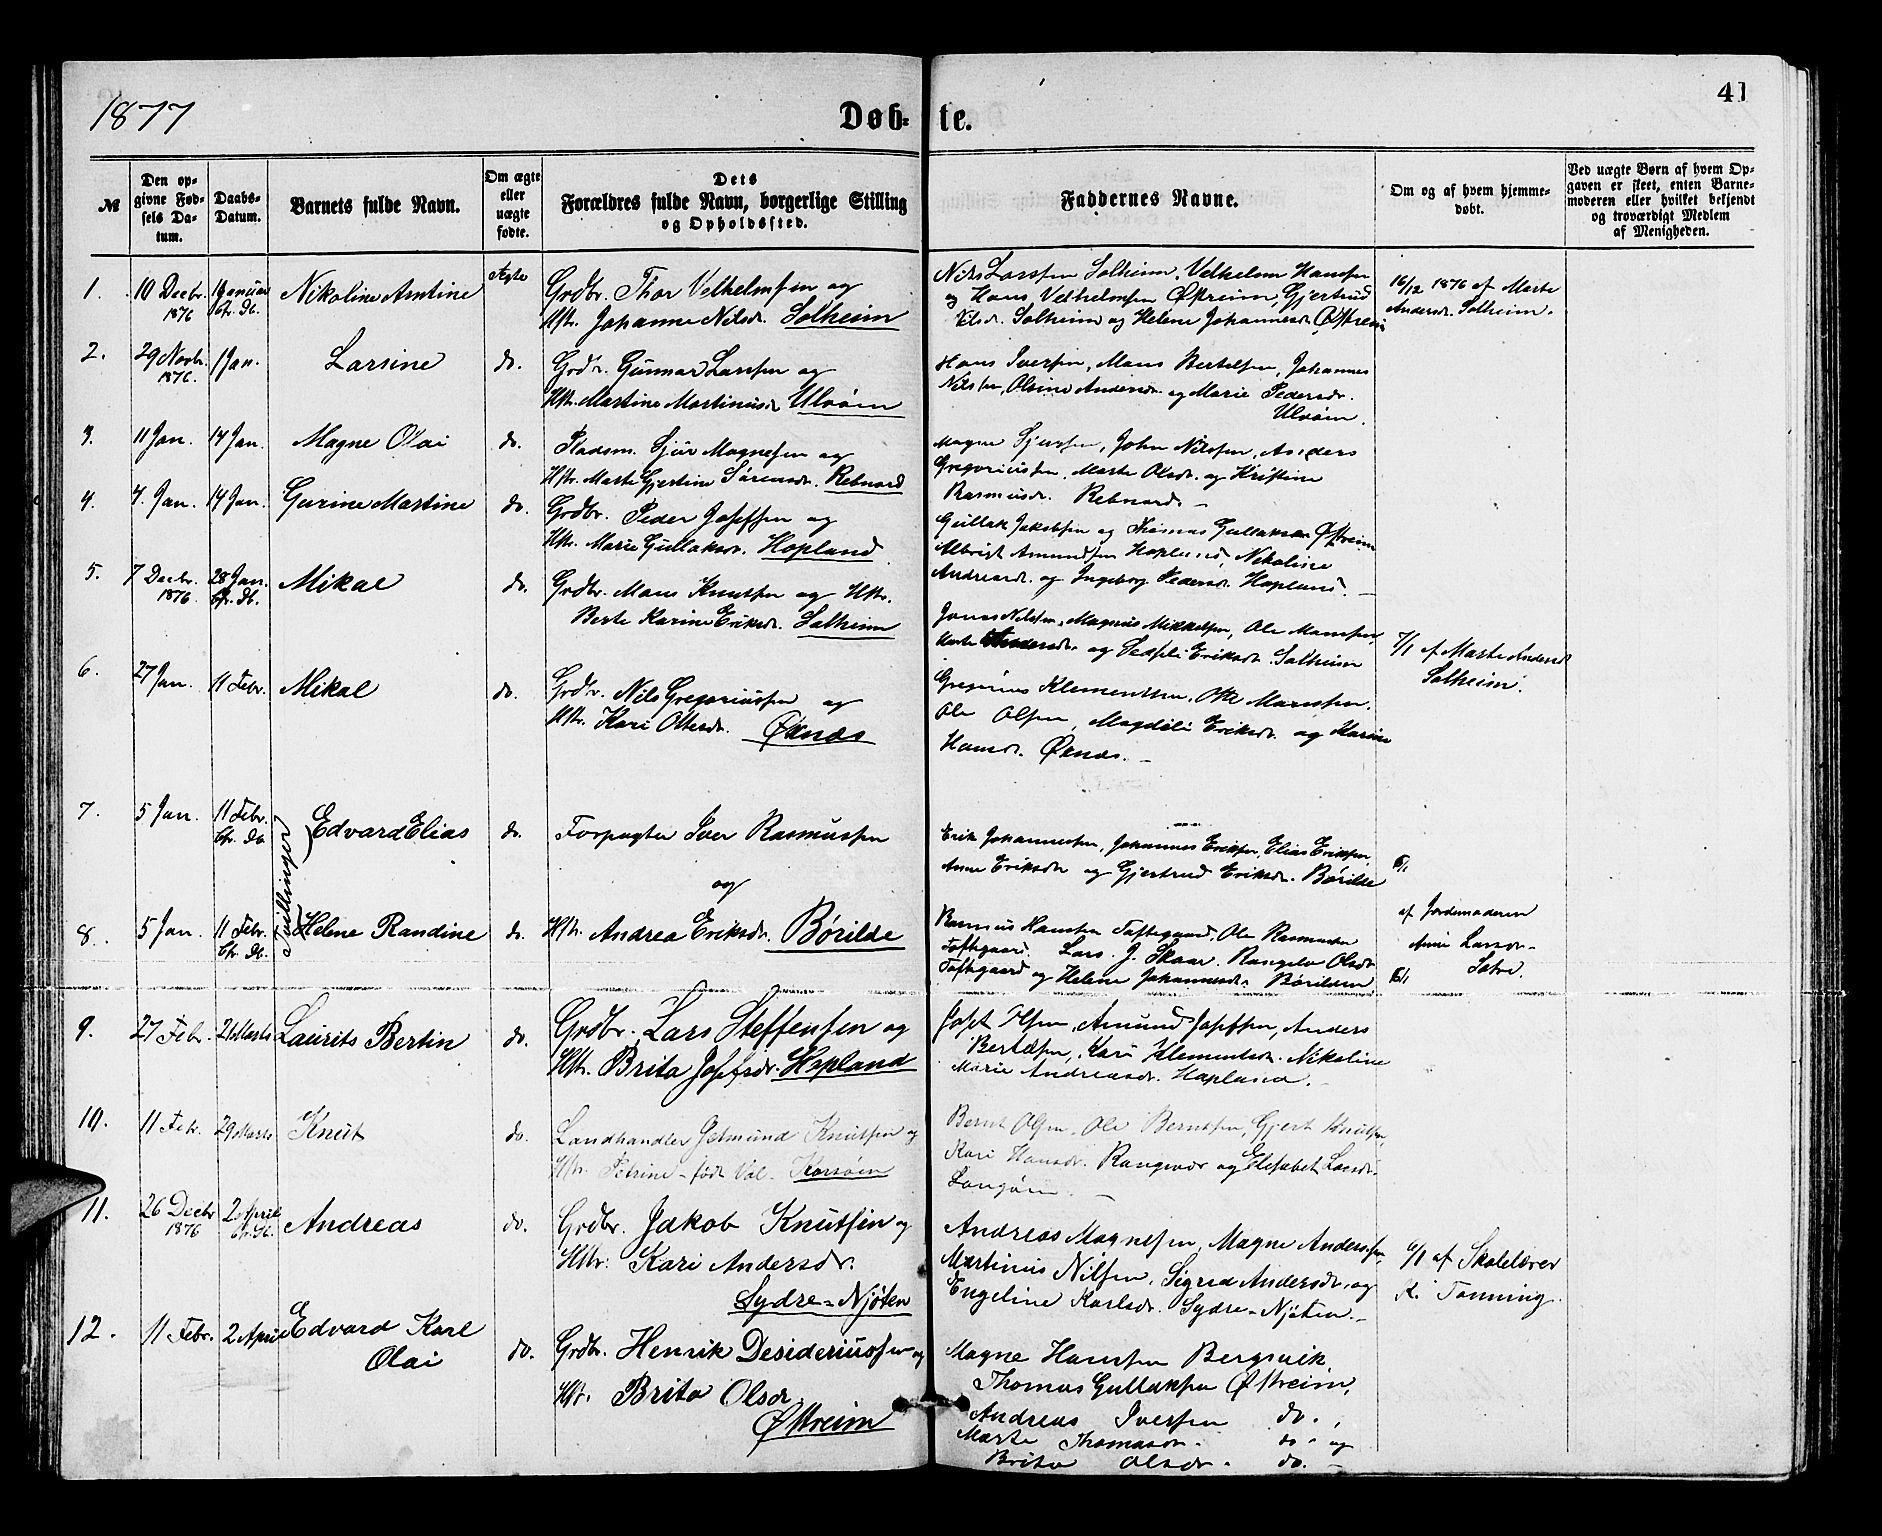 1877
Døb-te.
41
№
Den op-
givne Fød-
sels Da-
tum.
Daabs-
Datum.
Barnets fulde Navn.
Om ægte
eller
uægte
fødte.
Dets
Forældres fulde Navn, borgerlige Stilling
og Opholdssted.
Faddernes Navne.
Om og af hvem hjemme-
døbt.
Ved uægte Børn af hvem Op-
gaven er skeet, enten Barne-
moderen eller hvilket bekjendt
og troværdigt Medlem
af Menigheden.
1. 10 Decbr. 1876
Nikoline Amtine
Ægte
Grdbr. Thor Velhelmsen og
Hstr. Johanne Nilsdr. Solheim
Nils Larssen Solheim, Velhelm Hanssen
og Hans Velhelmsen Østreim, Gjertrud
Nilsdr. Solheim og Helene Johannesdr. Østreim
16/12 1876 af Marte
Andersdr. Solheim.
2. 29 Novbr. 1876. 1 Jan. Larsine do.
Grdbr. Gunnar Larssen og
Hstr. Martine Martinusdr. Ulvøen
Hans Iversen, Mons Bertelsen, Johannes
Nilssen, Olsine Andersdr. og Marie Pedersdr.
Ulvøen.
3. 11 Jan. 14 Jan. Magne Olai do.
Pladsm. Sjur Magnesen og
Hstr. Marte Gjertine Sørensdr. Rebnord
Magne Sjursen, John Nilssen, Anders
Gregoriussen, Marte Olsdr. og Kristine
Rasmusdr. Rebnord. –
4. 7. Jan. 14 Jan. Gurine Martine do.
Grdbr. Peder Josefsen og
Hstr. Marie Gullaksdr. Hopland
Gullak Jakobsen og Thomas Gullaksen Østreim
Albrigt Amundsen Hopland, Nikoline
Andreasdr. og Ingeborg Pedersdr. Hopland. –
5. 7 Decbr. 1876. 28 Jan. Mikal do.
Grdbr. Mons Knutsen og Hstr.
Berte Karine Eriksdr. Solheim
Jonas Nilssen, Magnus Mikkelsen, Ole Monssen,
Marte Andersdr. og Eriksdr. Solheim
7/1 af Marte Andersdr.
Solheim.
6. 27 Jan. 11 Febr. Mikal do.
Grdbr. Nils Gregoriussen og
Hstr. Kari Ottesdr. Øxnæs
Gregorius Klementsen,
Ole Olsen, Magdeli Eriksdr. og Karine
Hansdr. Øxnæs. –
Tvillinger
7. 5 Jan. 11 Febr. Edvard Elias do.
Forpagter Iver Rasmussen
og
Erik Johannessen, Johannes Eriksen, Elias Eriksen,
Anne Eriksdr. og Gjertrud Eriksdr. Børilde
8. 5 Jan. 11 Febr. Helene Randine do.
Hstr. Andrea Eriksdr. Børilde
Rasmus Hanssen Toftegaard, Ole Rasmussen
Toftegaard. Lars J. Skaar, Olsdr.
Toftegaard og Helene Johannesdr. Børilden
af Jordemoderen
Anne
9. 27 Febr. 21 Marts Laurits Bertin do.
Grdbr. Lars Steffensen og
Hstr. Brita Josefsdr. Hopland
Josef Olsen, Amund Josefsen, Anders
Bertelsen, Kari Klementsdr. Nikoline
Marie Andreasdr. Hopland. –
10. 11 Febr. 29 Marts Knut do.
Landhandler Knutsen og
Hstr. Petrine – født Korsøen
Bernt Olsen, Ole Berntsen, Gjert Knutsen,
Kari Hansdr. og Elisabet
–
11. 26 Decbr 1876 2 April Andreas do.
Grdbr. Jakob Knutsen og
Hstr. Kari Andersdr.
Sydre-Njøten
Andreas Magnesen, Magne Anderssen,
Martinus Nilsen, Sigrid Andersdr. og
Engeline Karlsdr. Sydre-Njøten. –
6/1 af Skolelærer
K. Tonning.
12. 11 Febr. 2 April Edvard Karl
Olai
do.
Grdbr. Henrik Desideriussen og
Hstr. Brita Olsdr.
Østreim
Magne Hanssen Bergsvik,
Thomas Gullaksen Østreim,
Andreas Iversen do.,
Marte Thomasdr. do. og
Brita Olsdr. do. –